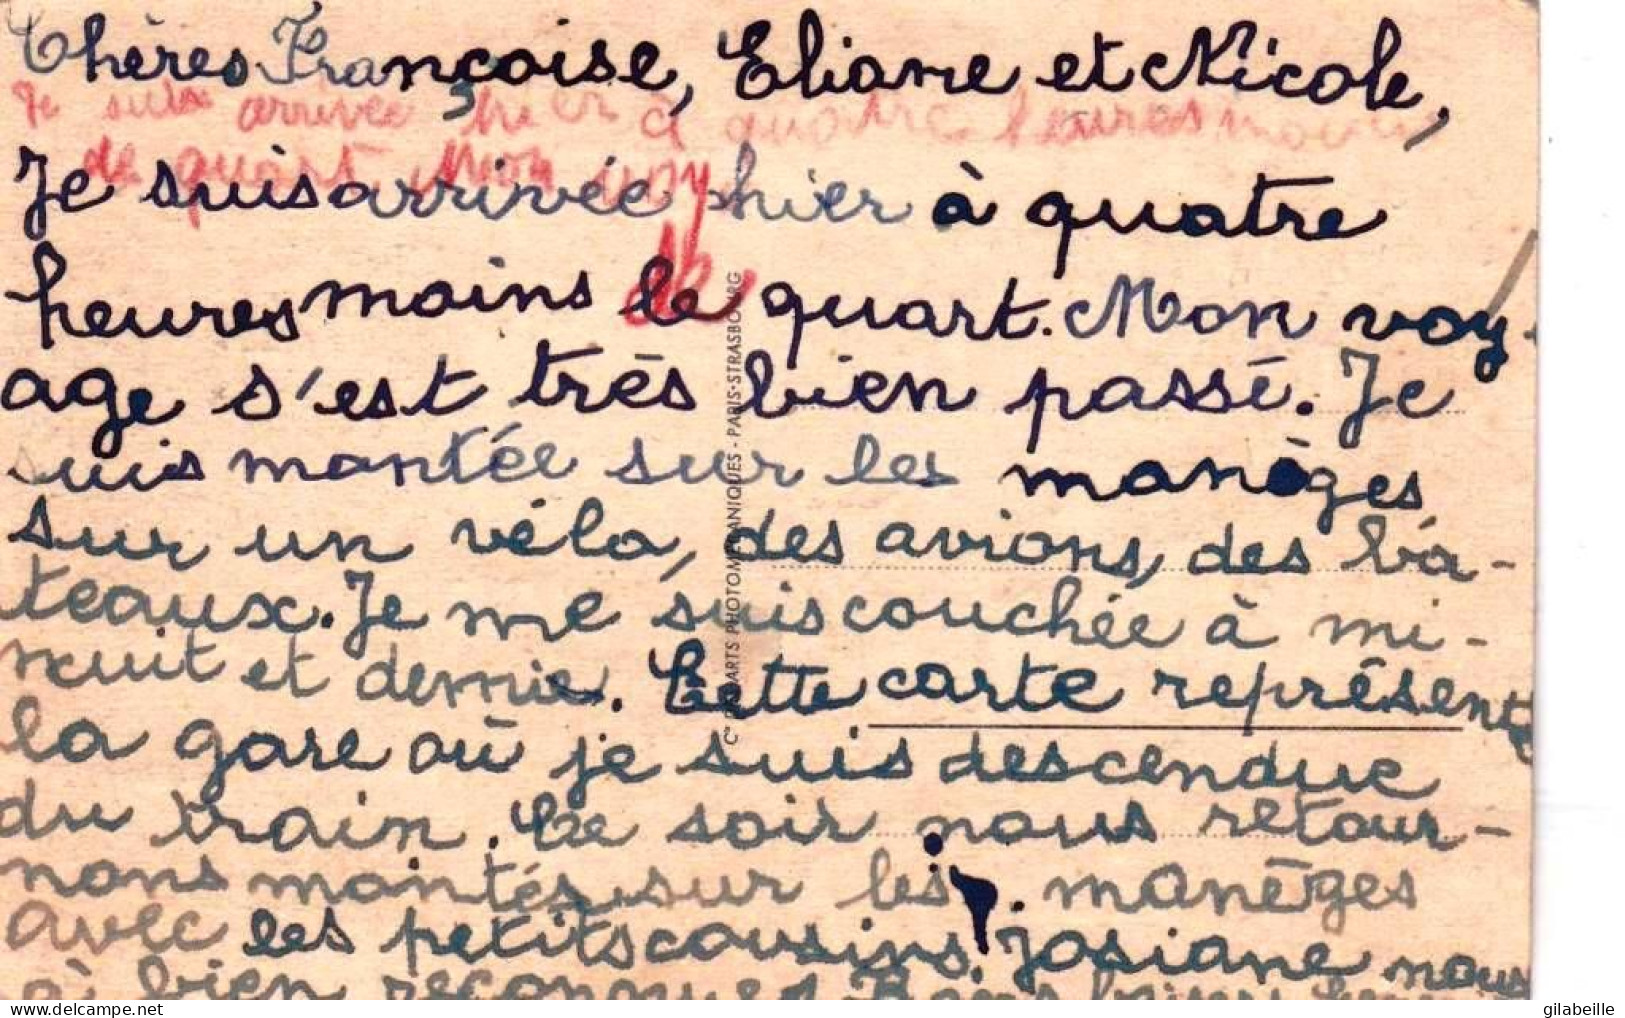 Chères Françoise, Eliane et Nicole,
Je suis arrivée hier à quatre heures moins
de quart Mon voy
Je suis arrivée hier à quatre
heures moins le quart. Mon voy-
age s'est très bien passé. Je
suis montée sur les manèges
sur un vélo, des avions, des ba-
teaux. Je me suis couchée à mi-
nuit et demie. Cette carte représente
la gare où je suis descendue
du train. Ce soir nous retour-
nons montés sur les manèges
avec les petits cousins. Josiane nous
a bien reconnues. Bons
Cie DES ARTS PHOTOMÉCANIQUES - PARIS-STRASBOURG
gilabeille